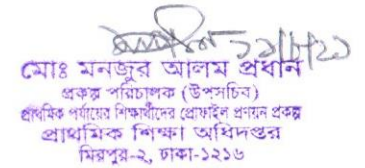 ১১/৮/২১
মোঃ মনজুর আলম প্রধান
প্রকল্প পরিচালক (উপসচিব)
প্রাথমিক পর্যায়ের শিক্ষার্থীদের প্রোফাইল প্রণয়ন প্রকল্প
প্রাথমিক শিক্ষা অধিদপ্তর
মিরপুর-২, ঢাকা-১২১৬